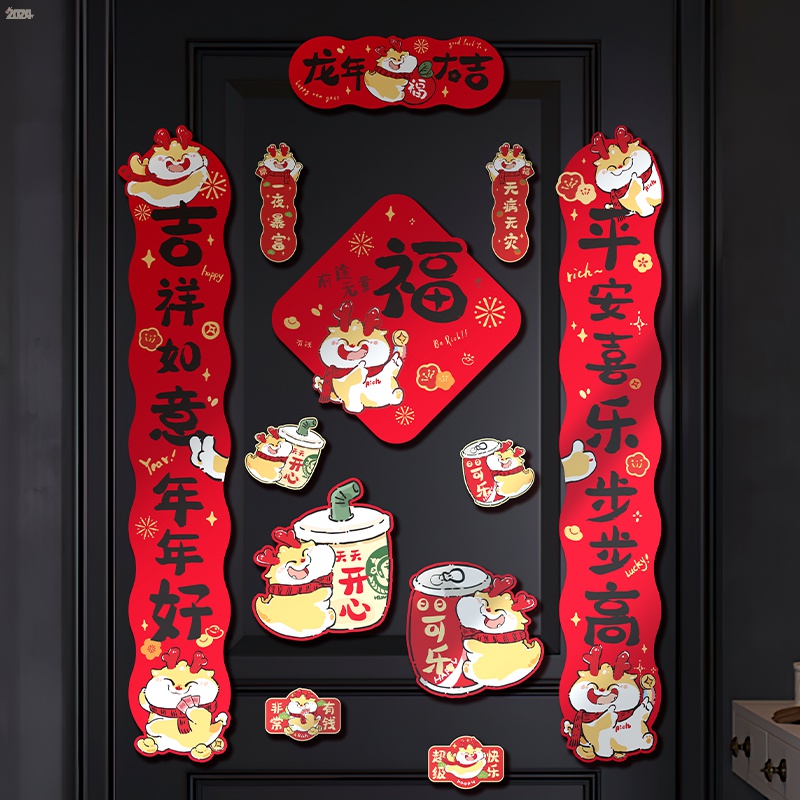 2024
龙年大吉
福
good luck to
happy new year
吉祥如意年年好
happy
Year!
一夜暴富
无病无灾
福
Be Rich!!
Rich
平安喜乐步步高
Rich
rich~
lucky!
Rich
天天
开心
可乐
天天
开心
可乐
非常有钱
Rich
超级快乐
HAPPY